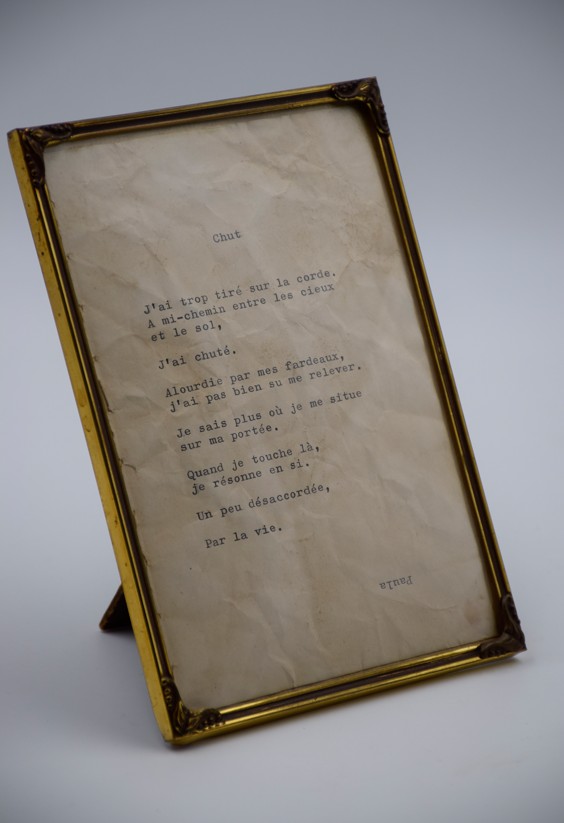 Chut
J'ai trop tiré sur la corde.
A mi-chemin entre les cieux
et le sol,
J'ai chuté.
Alourdie par mes fardeaux,
j'ai pas bien su me relever.
Je sais plus où je me situe
sur ma portée.
Quand je touche là,
je résonne en si.
Un peu désaccordée,
Par la vie.
Paula